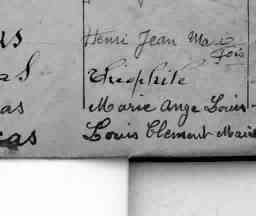 us Henri Jean Marie
Fois
as Théophile
as Marie Ange Louis
cas Louis Clement Marie